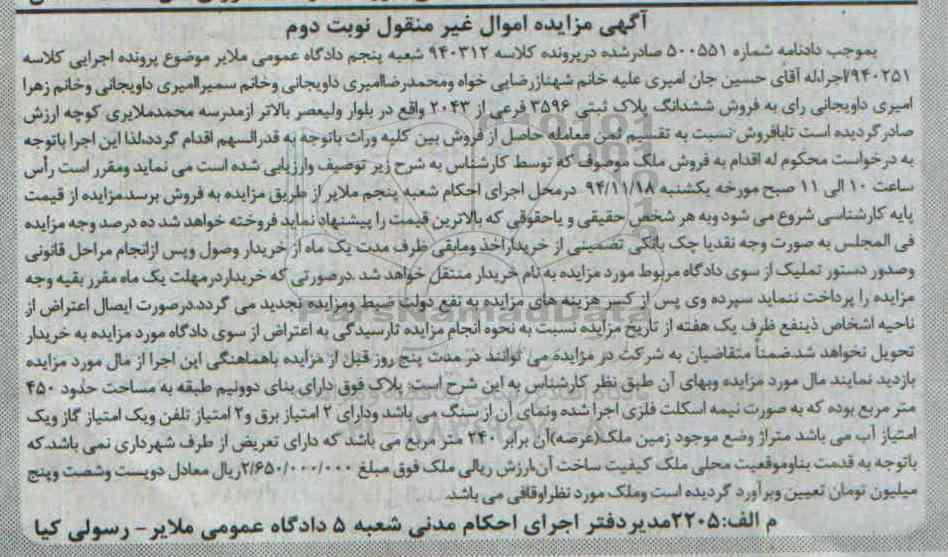 آگهی مزایده اموال غیر منقول نوبت دوم
بموجب دادنامه شماره ۵۰۰۵۵۱ صادرشده درپرونده کلاسه ۹۴۰۳۱۲ شعبه پنجم دادگاه عمومی ملایر موضوع پرونده اجرایی کلاسه
۹۴۰۲۵۱/اجرا،له آقای حسین جان امیری علیه خانم شهنازرضایی خواه ومحمدرضاامیری داویجانی وخانم سمیراامیری داویجانی وخانم زهرا
امیری داویجانی رای به فروش ششدانگ پلاک ثبتی ۳۵۹۶ فرعی از ۲۰۴۳ واقع در بلوار ولیعصر بالاتر ازمدرسه محمدملایری کوچه ارزش
صادرگردیده است تاباقروش نسبت به تقسیم ثمن معامله حاصل از فروش بین کلیه وراث باتوجه به قدرالسهم اقدام گردد،لذا این اجرا باتوجه
به درخواست محکوم له اقدام به فروش ملک موصوف که توسط کارشناس به شرح زیر توصیف وارزیابی شده است می نماید ومقرر است رأس
ساعت ۱۰ الی ۱۱ صبح مورخه یکشنبه ۹۴/۱۱/۱۸ درمحل اجرای احکام شعبه پنجم ملایر از طریق مزایده به فروش برسد،مزایده از قیمت
پایه کارشناسی شروع می شود وبه هر شخص حقیقی و یاحقوقی که بالاترین قیمت را پیشنهاد نماید فروخته خواهد شد ده درصد وجه مزایده
فی المجلس به صورت وجه نقدیا چک بانکی تضمینی از خریداراخذ ومابقی ظرف مدت یک ماه از خریدار وصول وپس ازانجام مراحل قانونی
وصدور دستور تملیک از سوی دادگاه مربوط مورد مزایده به نام خریدار منتقل خواهد شد .درصورتی که خریداردرمهلت یک ماه مقرر بقیه وجه
مزایده را پرداخت ننماید سپرده وی پس از کسر هزینه های مزایده به نفع دولت ضبط ومزایده تجدید می گردد.درصورت ایصال اعتراض از
ناحیه اشخاص ذینفع ظرف یک هفته از تاریخ مزایده نسبت به نحوه انجام مزایده تارسیدگی به اعتراض از سوی دادگاه مورد مزایده به خریدار
تحویل نخواهد شد.ضمناً متقاضیان به شرکت در مزایده می توانند در مدت پنج روز قبل از مزایده باهماهنگی این اجرا از مال مورد مزایده
بازدید نمایند مال مورد مزایده وبهای آن طبق نظر کارشناس به این شرح است: پلاک فوق دارای بنای دوونیم طبقه به مساحت حدود ۴۵۰
متر مربع بوده که به صورت نیمه اسکلت فلزی اجرا شده ونمای آن از سنگ می باشد ودارای ۲ امتیاز برق و۲ امتیاز تلفن ویک امتیاز گاز ویک
امتیاز آب می باشد متراژ وضع موجود زمین ملک(عرصه)آن برابر ۲۴۰ متر مربع می باشد که دارای تعریض از طرف شهرداری نمی باشد.که
باتوجه به قدمت بناوموقعیت محلی ملک کیفیت ساخت آن،ارزش ریالی ملک فوق مبلغ ۲/۶۵۰/۰۰۰/۰۰۰ریال معادل دویست وشصت وپنج
میلیون تومان تعیین وبرآورد گردیده است وملک مورد نظراوقافی می باشد.
م الف:۲۲۰۵مدیردفتر اجرای احکام مدنی شعبه ۵ دادگاه عمومی ملایر- رسولی کیا
ParsNamadData